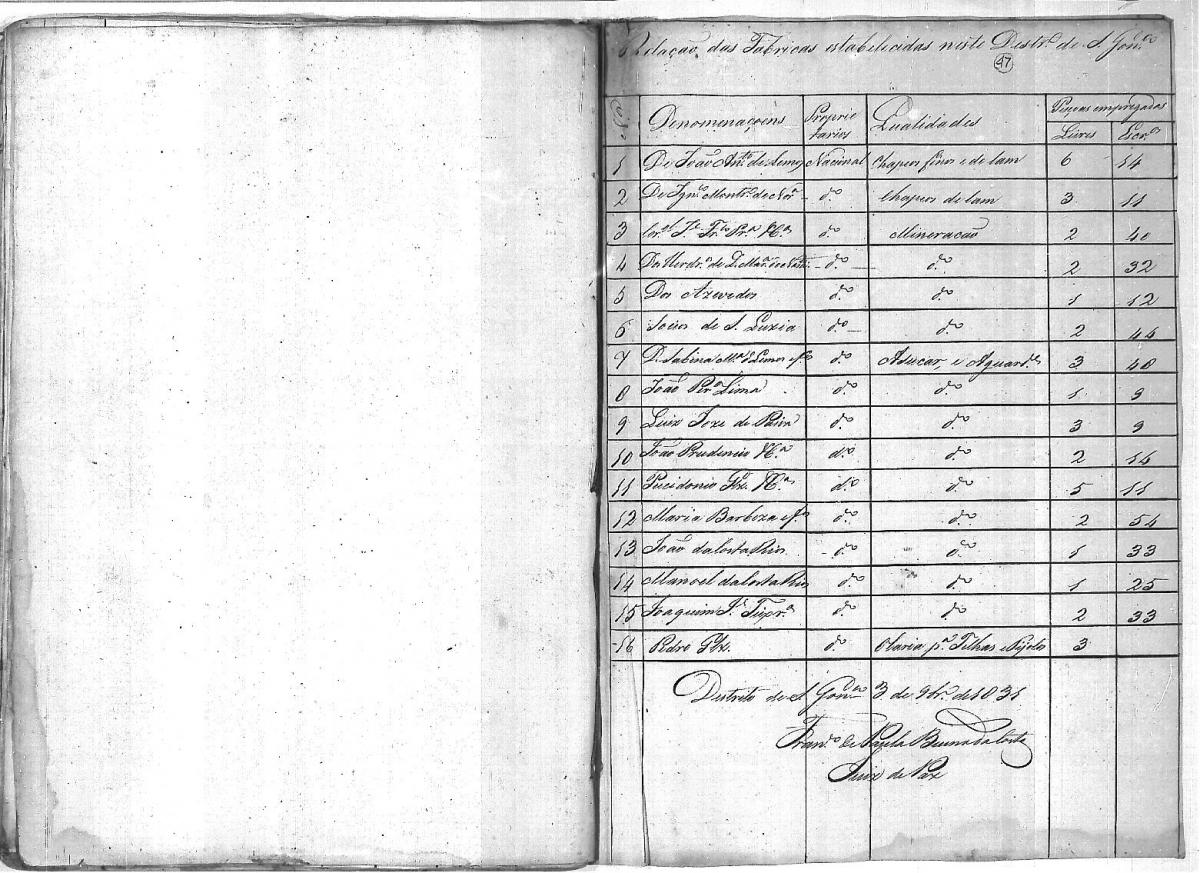 Relação das Fabricas estabelecidas neste Destr.º de S. Gon.ço
47
N.os Denominaçoens Proprietarios Qualidades Pessoas empregadas
Livres Escr.os
1 De João Ant.º de Lemos Nacional Chapeos finos e de lam 6 14
2 De Ign.co Montr.º de d.º Chapeos de lam 3 11
3 Cor.el J.e Fr.co Pr.a d.º Mineração 2 40
4 Dos Herdr.os de d.º d.º 2 32
5 Dos Azevedos d.º d.º 1 12
6 Socios de S. Luzia d.º d.º 2 44
7 D. Sabina M.a de Lemos e f.os d.º Asucar, e Aguard.e 3 40
8 João Per.a Lima d.º d.º 1 9
9 Luiz Joze de Paiva d.º d.º 3 9
10 João Prudencio d.º d.º 2 14
11 Pucidonio d.º d.º 5 11
12 Maria Barboza e f.os d.º d.º 2 54
13 João da Costa Rios d.º d.º 1 33
14 Manoel da Costa Rios d.º d.º 1 25
15 Joaquim J.e d.º d.º 2 33
16 Pedro d.º Olaria p.a Telhas e Tijolos 3
Destrito de S. Gon.ço 3 de 9br.º de 1831
Fran.co de Paula Bueno da Costa
Juiz de Paz